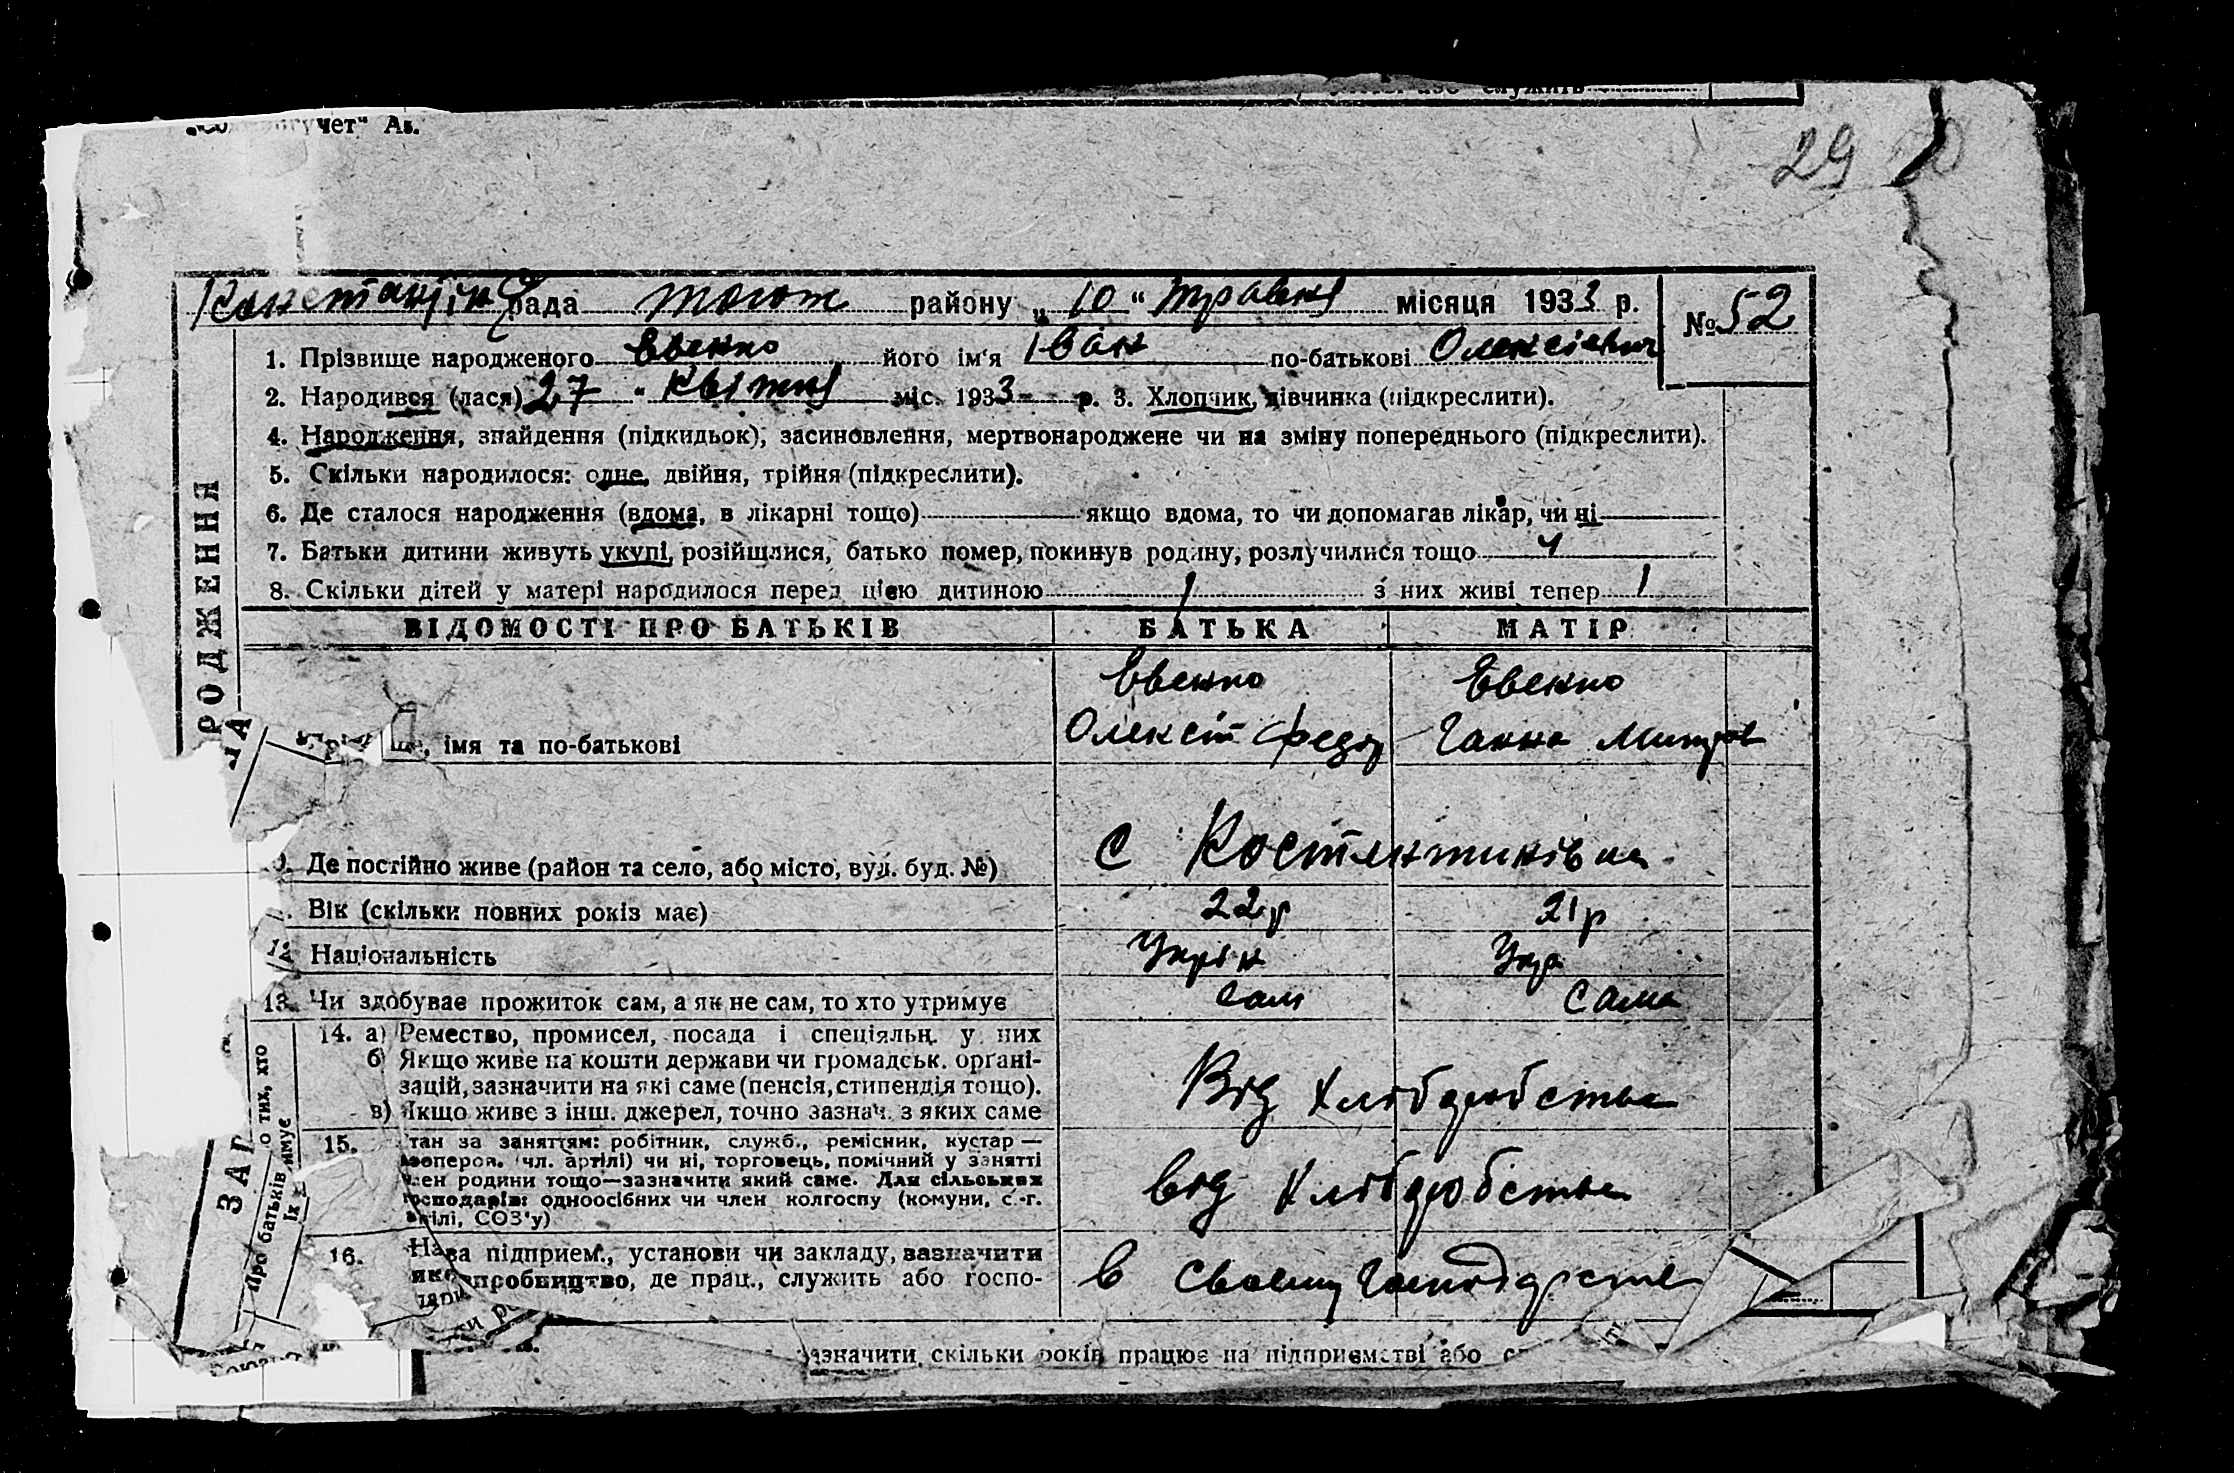 учет" Ав.
29
рада району „10“ травня місяця 1933 р. № 52
1. Прізвище народженого Евенко його ім'я Іван по-батькові Олексієвич
2. Народився (лася) 27 " квітня міс. 1933 р. 3. Хлопчик, дівчинка (підкреслити).
4. Народження, знайдення (підкидьок), засиновлення, мертвонароджене чи на зміну попереднього (підкреслити).
5. Скільки народилося: одне, двійня, трійня (підкреслити).
6. Де сталося народження (вдома, в лікарні тощо) якщо вдома, то чи допомагав лікар, чи ні
7. Батьки дитини живуть укупі, розійшлися, батько помер, покинув родину, розлучилися тощо
8. Скільки дітей у матері народилося перед цією дитиною 1 з них живі тепер 1
ВІДОМОСТІ ПРО БАТЬКІВ БАТЬКА МАТІР
Евенко Евенко
імя та по-батькові Олексій Федор Ганна Митров
Де постійно живе (район та село, або місто, вул. буд. №) с Костянтинівка
Вік (скільки повних років має) 22р 21р
12. Національність Украін Укр
13. Чи здобуває прожиток сам, а як не сам, то хто утримує сам сама
14. а) Ремество, промисел, посада і спеціяльн. у них
б) Якщо живе на кошти держави чи громадськ. органі-
зацій, зазначити на які саме (пенсія, стипендія тощо).
в) Якщо живе з інш. джерел, точно зазнач. з яких саме
Від хліборобства
15. тан за заняттям: робітник, служб., ремісник, кустар —
(чл. артілі) чи ні, торговець, помічний у занятті
член родини тощо—зазначити який саме. Для сільських
господарів: одноосібних чи член колгоспу (комуни, с.-г.
артілі, СОЗ'у)
від хліборобства
16. На ва підприєм., установи чи закладу, зазначити
яке виробництво, де прац., служить або госпо-
в своему господарстві
зазначити, скільки років працює на підприємстві або
РОДЖЕННЯ
ЗАГ
Про батьків
о тих, хто
їх